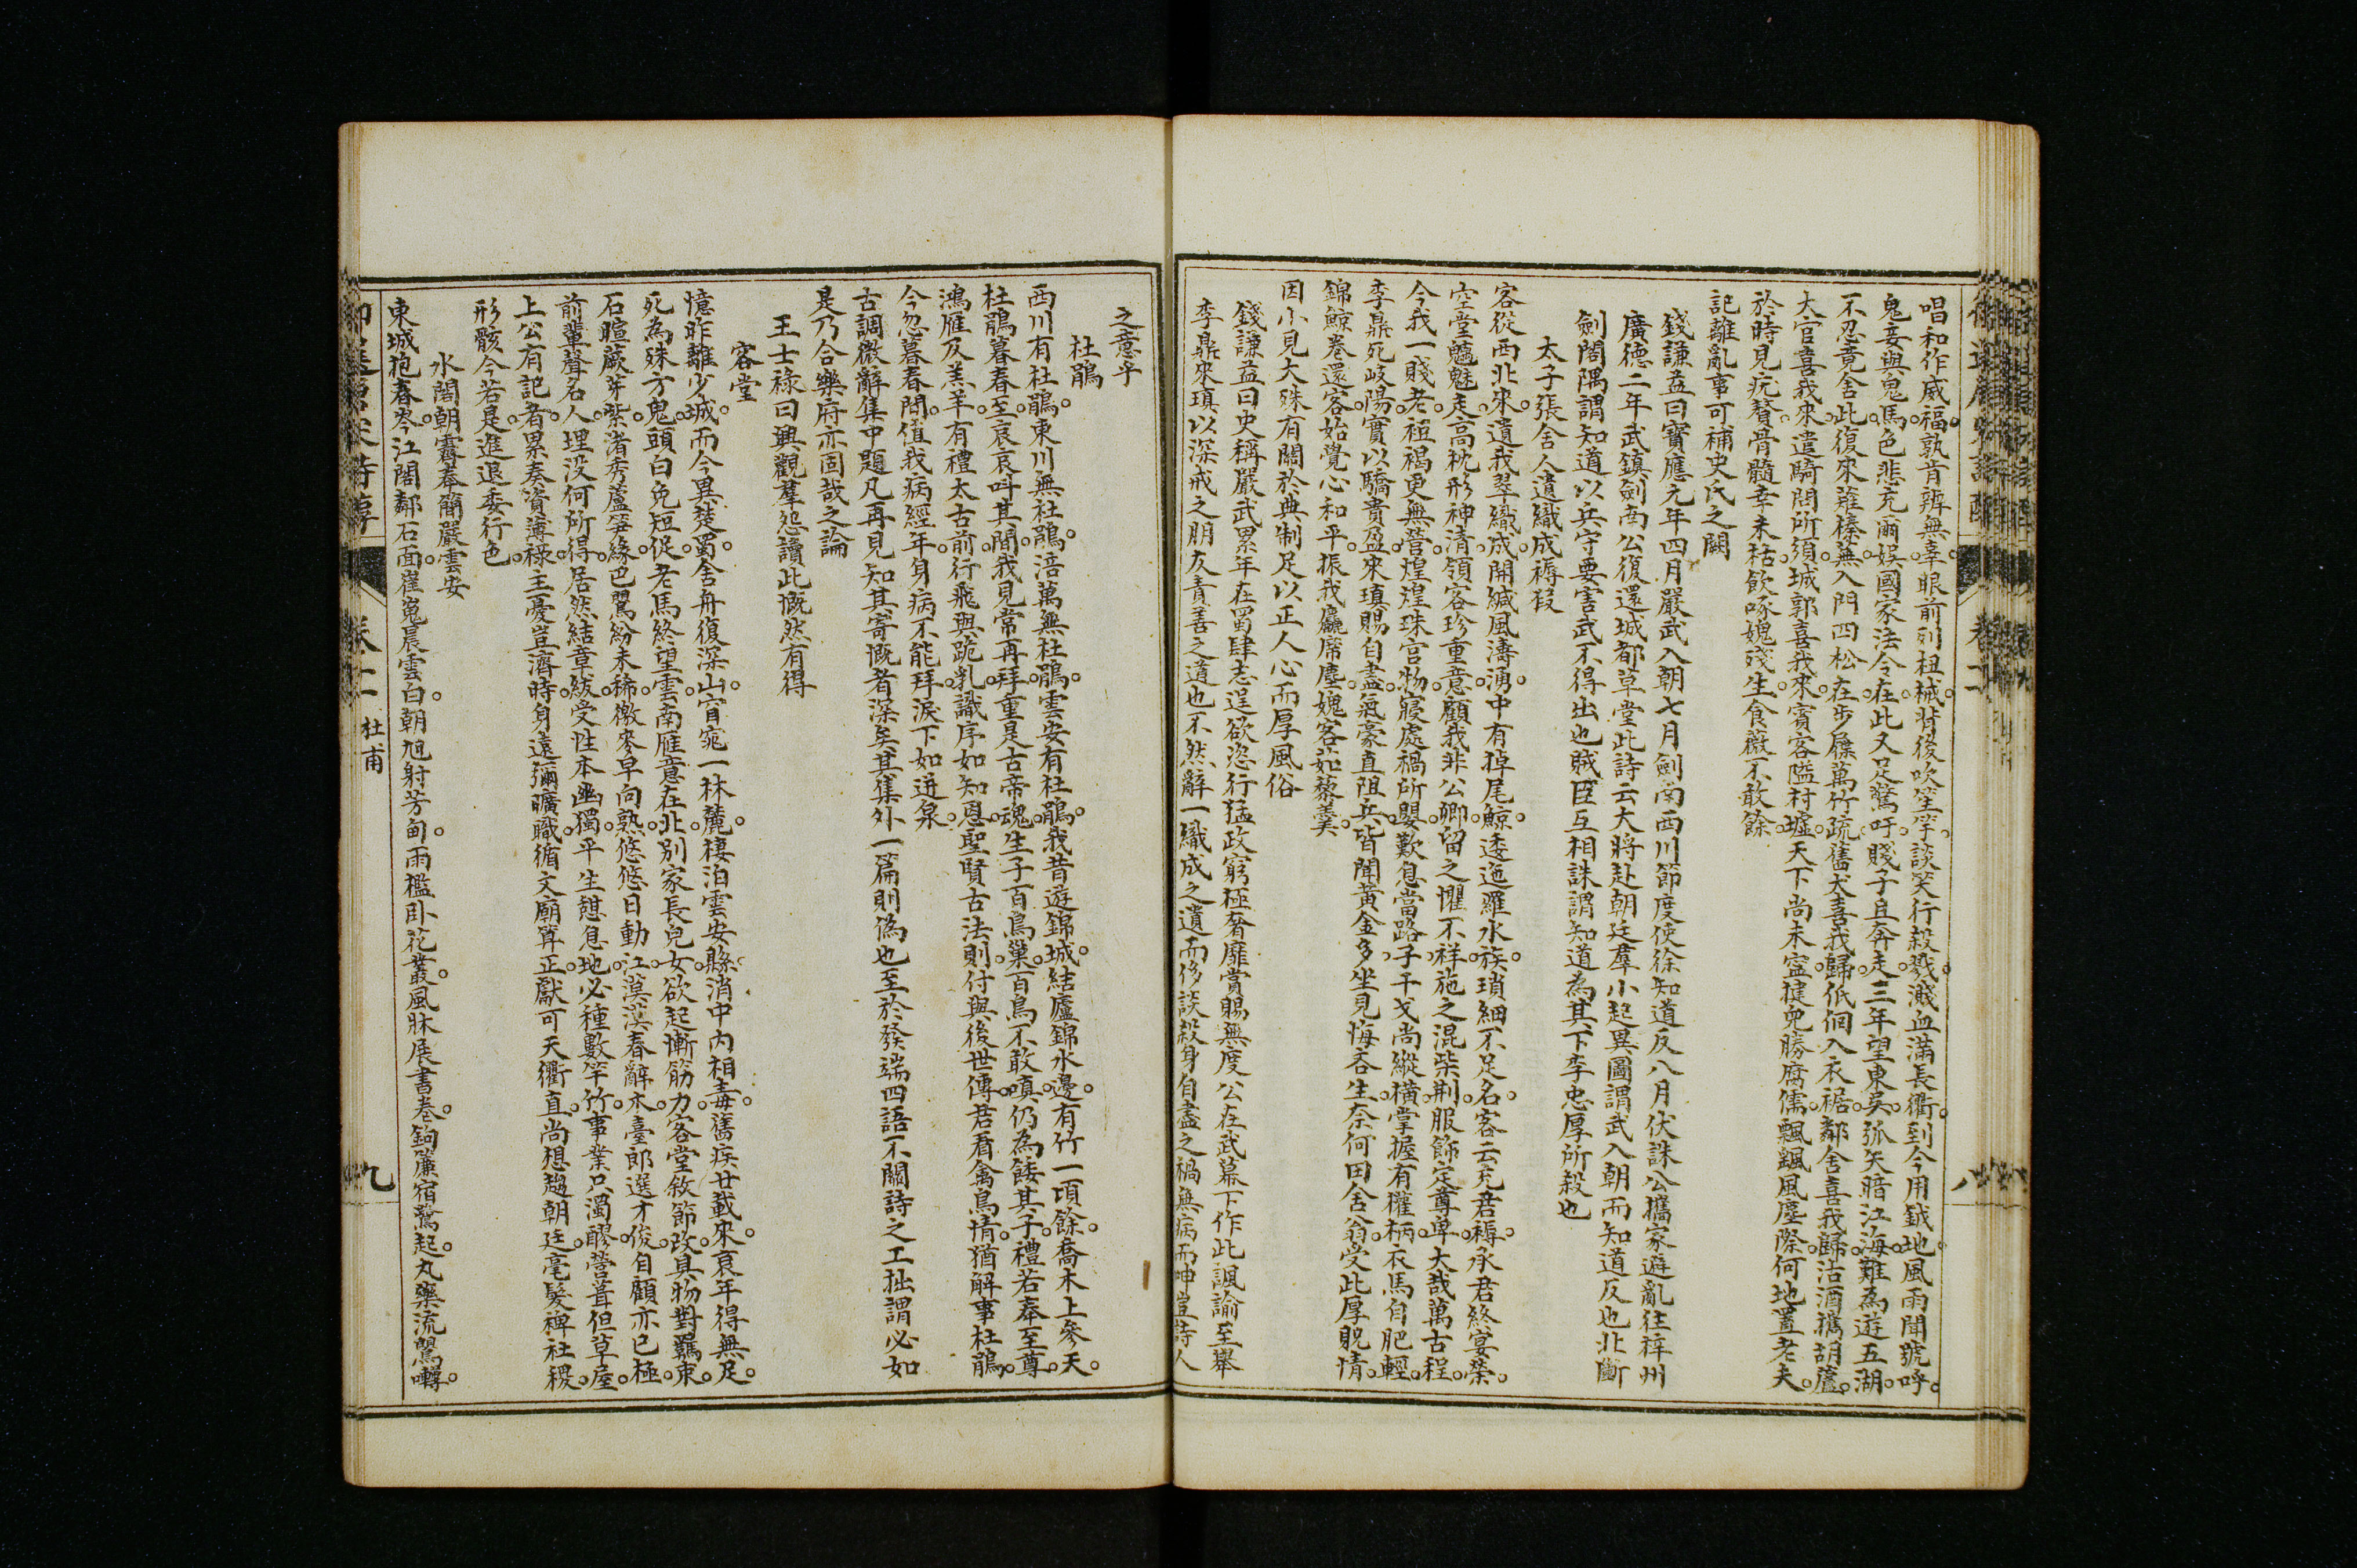 唱和作威福孰肯辨無辜眼前列杻械背後吹笙竽談笑行殺戮濺血滿長衢到今用鉞地風雨聞號呼
鬼妾與鬼馬色悲充爾娛國家法令在此又足驚吁賤子且奔走三年望東吳弧矢暗江海難為遊五湖
不忍竟舍此復來薙榛蕪入門四松在步屧萬竹疏舊犬喜我歸低佪入衣裾鄰舍喜我歸沽酒攜胡蘆
大官喜我來遣騎問所須城郭喜我來賓客隘村墟天下尚未寍揵兒勝腐儒飄颻風塵際何地置老夫
於時見疣贅骨髓幸未枯飲啄媿殘生食薇不敢餘
記離亂事可補史氏之闕
錢謙益曰寶應元年四月嚴武入朝七月劍南西川節度使徐知道反八月伏誅公攜家避亂往梓州
廣德二年武鎮劍南公復還城都草堂此詩云大將赴朝廷羣小起異圖謂武入朝而知道反也北斷
劍閣隅謂知道以兵守要害武不得出也賊臣互相誅謂知道為其下李忠厚所殺也
太子張舍人遺織成褥段
客從西北來遺我翠織成開緘風濤湧中有掉尾鯨逶迤羅水族瑣細不足名客云充君褥承君終宴榮
空堂魑魅走高枕形神清領客珍重意顧我非公卿留之懼不祥施之混柴荆服飾定尊卑大哉萬古程
今我一賤老裋褐更無營煌煌珠宮物寢處禍所嬰歎息當路子干戈尚縱橫掌握有權柄衣馬自肥輕
李鼎死岐陽實以驕貴盈來瑱賜自盡氣豪直阻兵皆聞黃金多坐見悔吝生奈何田舍翁受此厚貺情
錦鯨卷還客始覺心和平振我麤席塵媿客茹藜羹
因小見大殊有關於典制足以正人心而厚風俗
錢謙益曰史稱嚴武累年在蜀肆志逞欲恣行猛政窮極奢靡賞賜無度公在武幕下作此諷諭至舉
李鼎來瑱以深戒之朋友責善之道也不然辭一織成之遺而侈談殺身自盡之禍無病而呻豈詩人
卷二
八
之意乎
杜鵑
西川有杜鵑東川無杜鵑涪萬無杜鵑雲安有杜鵑我昔遊錦城結廬錦水邊有竹一頃餘喬木上參天
杜鵑暮春至哀哀叫其間我見常再拜重是古帝魂生子百鳥巢百鳥不敢嗔仍為餧其子禮若奉至尊
鴻雁及羔羊有禮太古前行飛與跪乳識序如知恩聖賢古法則付與後世傳君看禽鳥情猶解事杜鵑
今忽暮春間值我病經年身病不能拜淚下如迸泉
古調微辭集中題凡再見知其寄慨者深矣其集外一篇則偽也至於發端四語不關詩之工拙謂必如
是乃合樂府亦固哉之論
王士祿曰興觀羣怨讀此慨然有得
客堂
憶昨離少城而今異楚蜀舍舟復深山窅窕一林麓棲泊雲安縣消中內相毒舊疾廿載來衰年得無足
死為殊方鬼頭白免短促老馬終望雲南雁意在北別家長兒女欲起慚筋力客堂敘節改具物對羈束
石暄蕨芽紫渚秀蘆筍綠巴鶯紛未稀徼麥早向熟悠悠日動江漠漠春辭木臺郎選才俊自顧亦已極
前輩聲名人埋没何所得居然綰章紱受性本幽獨平生憩息地必種數竿竹事業只濁醪營葺但草屋
上公有記者累奏資薄祿主憂豈濟時身遠彌曠職循文廟算正獻可天衢直尚想趨朝廷毫髮裨社稷
形骸今若是進退委行色
水閣朝霽奉簡嚴雲安
東城抱春岑江閣鄰石面崔嵬晨雲白朝旭射芳甸雨檻卧花叢風牀展書卷鉤簾宿鷺起丸藥流鶯囀
卷二
杜甫
九